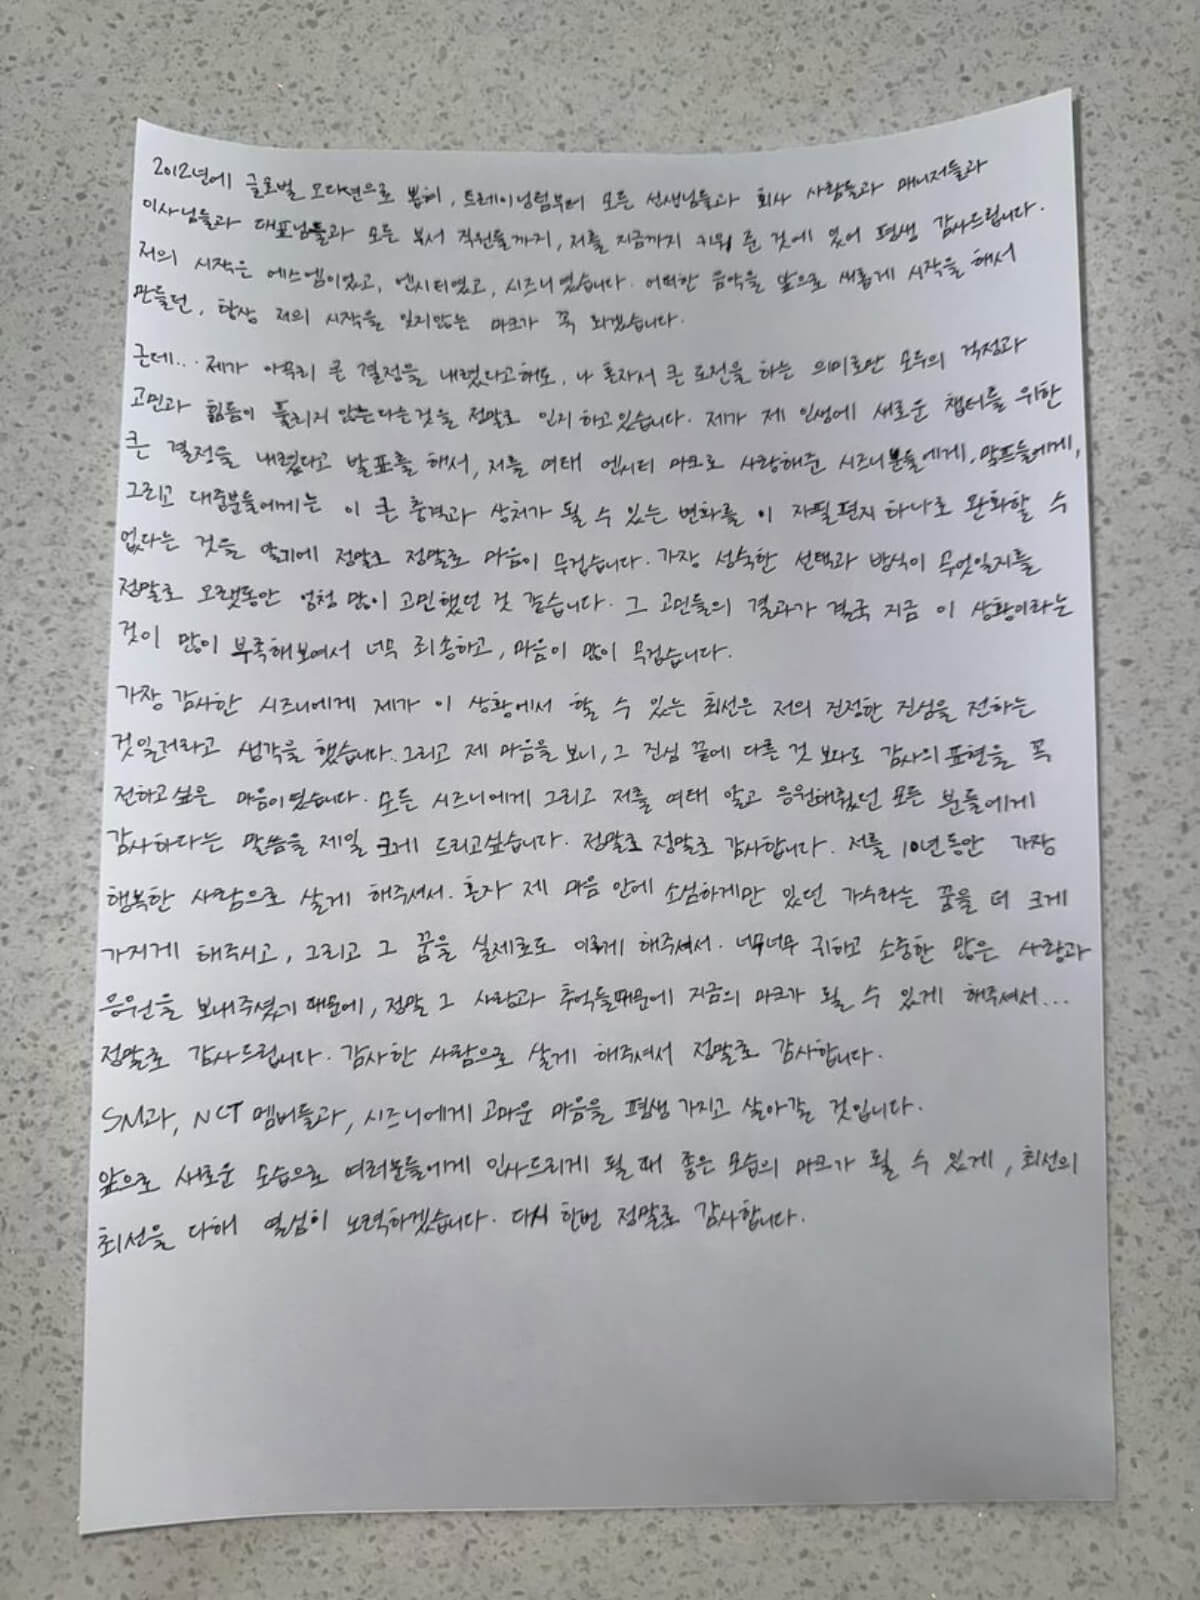 2012년에 글로벌 오디션으로 뽑히, 트레이닝팀부터 모든 선생님들과 회사 사람들과 매니저들과
이사님들과 대표님들과 모든 부서 직원들까지, 저를 지금까지 키워 준 것에 있어 평생 감사드립니다.
저의 시작은 에스엠이었고, 엔시티였고, 시즈니였습니다. 어떠한 음악을 앞으로 새롭게 시작을 해서
만들던, 항상 저의 시작을 잊지않는 마크가 꼭 되겠습니다.
근데... 제가 아무리 큰 결정을 내렸다고해도, 나 혼자서 큰 도전을 하는 의미로만 모두의 걱정과
고민과 힘듦이 풀리지 않는다는것을 정말로 인지 하고있습니다. 제가 제 인생에 새로운 챕터를 위한
큰 결정을 내렸다고 발표를 해서, 저를 여태 엔시티 마크로 사랑해준 시즈니분들에게, 맠프들에게,
그리고 대중분들에게는 이 큰 충격과 상처가 될 수 있는 변화를 이 자필편지 하나로 완화할 수
없다는 것을 알기에 정말로 정말로 마음이 무겁습니다. 가장 성숙한 선택과 방식이 무엇일지를
정말로 오랫동안 엄청 많이 고민했던 것 같습니다. 그 고민들의 결과가 결국 지금 이 상황이라는
것이 많이 부족해보여서 너무 죄송하고, 마음이 많이 무겁습니다.
가장 감사한 시즈니에게 제가 이 상황에서 할 수 있는 최선은 저의 진정한 진심을 전하는
것일거라고 생각을 했습니다. 그리고 제 마음을 보니, 그 진심 끝에 다른 것 보다도 감사의 표현을 꼭
전하고싶은 마음이였습니다. 모든 시즈니에게 그리고 저를 여태 알고 응원해줬던 모든 분들에게
감사하다는 말씀을 제일 크게 드리고싶습니다. 정말로 정말로 감사합니다. 저를 10년동안 가장
행복한 사람으로 살게 해주셔서. 혼자 제 마음 안에 소심하게만 있던 가수라는 꿈을 더 크게
가지게 해주시고, 그리고 그 꿈을 실제로도 이루게 해주셔서. 너무너무 귀하고 소중한 많은 사랑과
응원을 보내주셨기 때문에, 정말 그 사랑과 추억들때문에 지금의 마크가 될 수 있게 해주셔서...
정말로 감사드립니다. 감사한 사람으로 살게 해주셔서 정말로 감사합니다.
SM과, NCT 멤버들과, 시즈니에게 고마운 마음을 평생 가지고 살아갈 것입니다.
앞으로 새로운 모습으로 여러분들에게 인사드리게 될 때 좋은 모습의 마크가 될 수 있게, 최선의
최선을 다해 열심히 노력하겠습니다. 다시 한번 정말로 감사합니다.